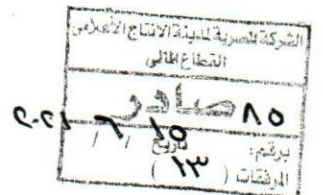 الشركة المصرية لمدينة الانتاج الأعلامى
القطاع المالى
صادر ٨٥
برقيم:
تاريخ ١٥ / ٦ / ٢٠٢١
المرفقات ( ١٣ )